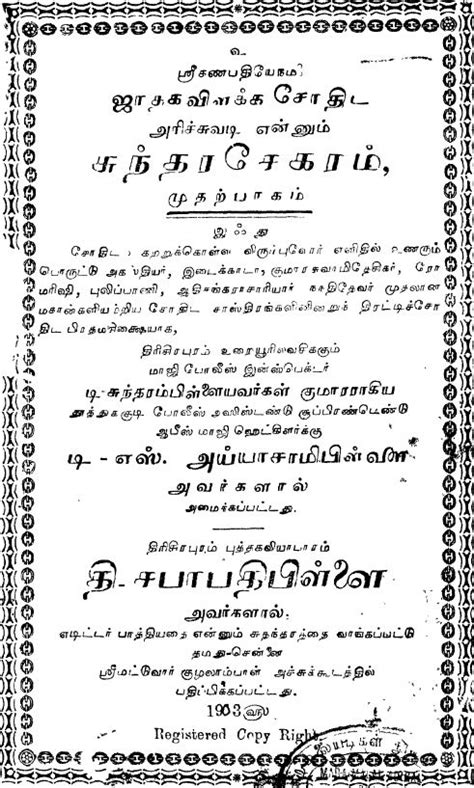 உ
ஸ்ரீகணபதியேநம
ஜாதகவிளக்க சோதிட
அரிச்சுவடி என்னும்
சுந்தரசேகரம்,
முதற்பாகம்
இஃது
சோதிட கற்றுக்கொள்ள விரும்புவோர் எளிதில் உணரும்
பொருட்டு அகஸ்தியர், இடைக்காடர், குமாரசுவாமிதேசிகர், ரோ
மரிஷி, புலிப்பாணி, ஆதிசங்கராசாரியார் நந்திதேவர் முதலான
மகான்களியற்றிய சோதிட சாஸ்திரங்களினின்றுந் திரட்டிச்சோ
திட
திரிசிரபுரம் உறையூரிலவசிக்கும்
மாஜி போலீஸ் இன்ஸ்பெக்டர்
டி-சுந்தரம்பிள்ளையவர்கள் குமாரராகிய
தூத்துக்குடி போலீஸ் அஸிஸ்டண்டு சூப்பிரண்டெண்டு
ஆபீஸ் மாஜி ஹெட்கிளர்க்கு
டி-எஸ். அய்யாசாமிபிள்ளை
அவர்களால்
அமைக்கப்பட்டது.
திரிசிரபுரம் புத்தகவியாபாரம்
தி-சபாபதிபிள்ளை
அவர்களால்.
எடிட்டர் பாத்தியதை என்னும் சுதந்தரத்தை வாங்கப்பட்டு
தமது-சென்னை
ஸ்ரீமட்டுவார் குழலாம்பாள் அச்சுக்கூடத்தில்
பதிப்பிக்கப்பட்டது.
1903
Registered Copy Right